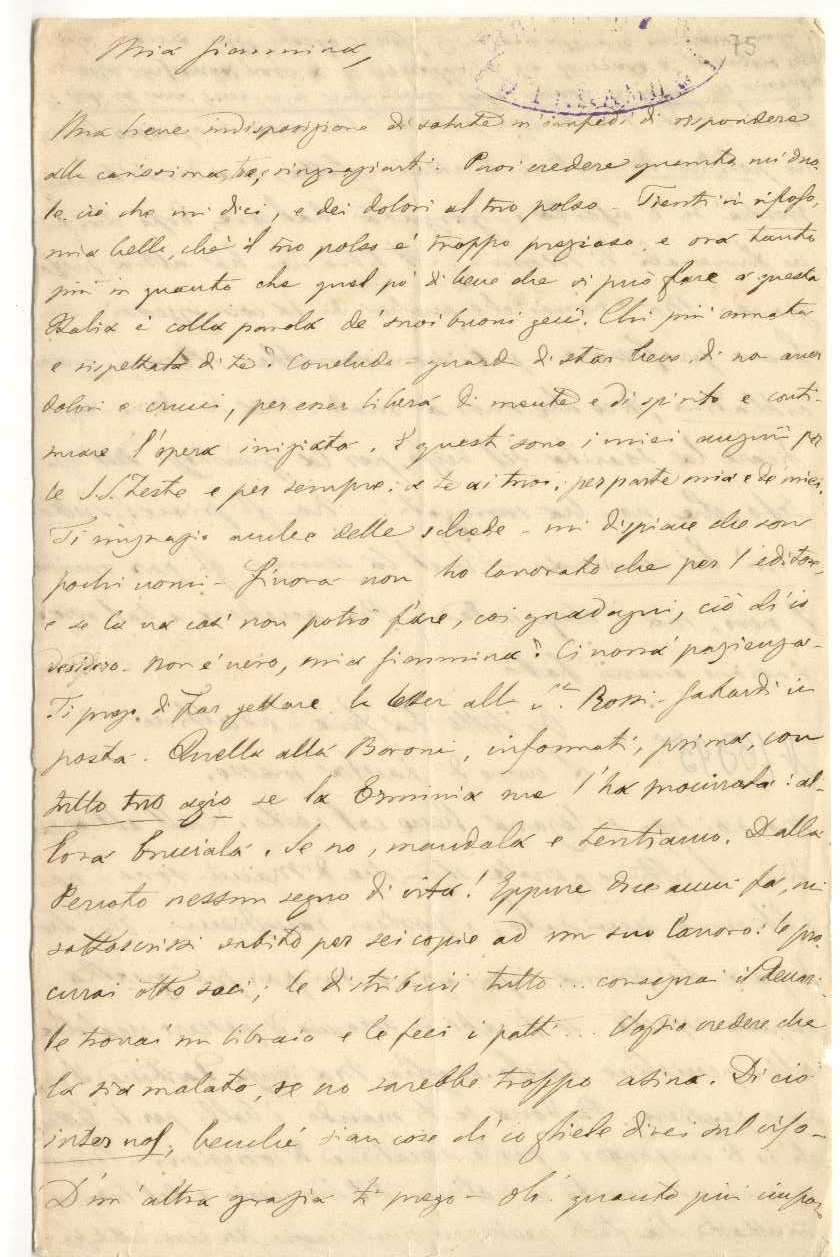 75
Mia Giannina,
Una lieve indisposizione di salute m'impedì di rispondere
alla carissima tua, ringraziarti. Puoi credere quanto mi duo-
le ciò che mi dici, e dei dolori al tuo polso - Tienti in riposo,
mia bella, chè il tuo polso è troppo prezioso, e ora tanto
più in quanto che quel po' di bene che si può fare a questa
Italia è colla parola de' suoi buoni genii. Chi più amata
e rispettata di te? Concludo - guarda di star bene, di non aver
dolori e crucci, per esser libera di mente e di spirito e conti-
nuare l'opera iniziata. E questi sono i miei augurii per
le S.S. Feste e per sempre: a te ai tuoi, per parte mia e de' miei.
Ti ringrazio anche delle schede - mi dispiace che son
pochi nomi - Finora non ho lavorato che per l'editore,
e se la va così non potrò fare, coi guadagni, ciò ch'io
desidero - Non è vero, mia Giannina? Ci vorrà pazienza -
Ti prego di far gettare la letter alla Rossi - Gabardi in
posta. Quella alla Baroni, informati, prima, con
tutto tuo agio se la Erminia me l'ha procurata: al-
lora bruciala. Se no, mandala e tentiamo. Dalla
nessun segno di vita! Eppure due anni fa, mi
sottoscrissi subito per sei copie ad un suo lavoro: le pro-
curai otto soci; le distribuii tutto... consegnai il denar-
le trovai un libraio e le feci i patti... Voglio credere che
la sia malata, se no sarebbe troppo asina. Di ciò
inter nos, benchè sian cose ch'io gliele direi sul viso -
D'un'altra grazia ti prego - oh! quanto più impor-